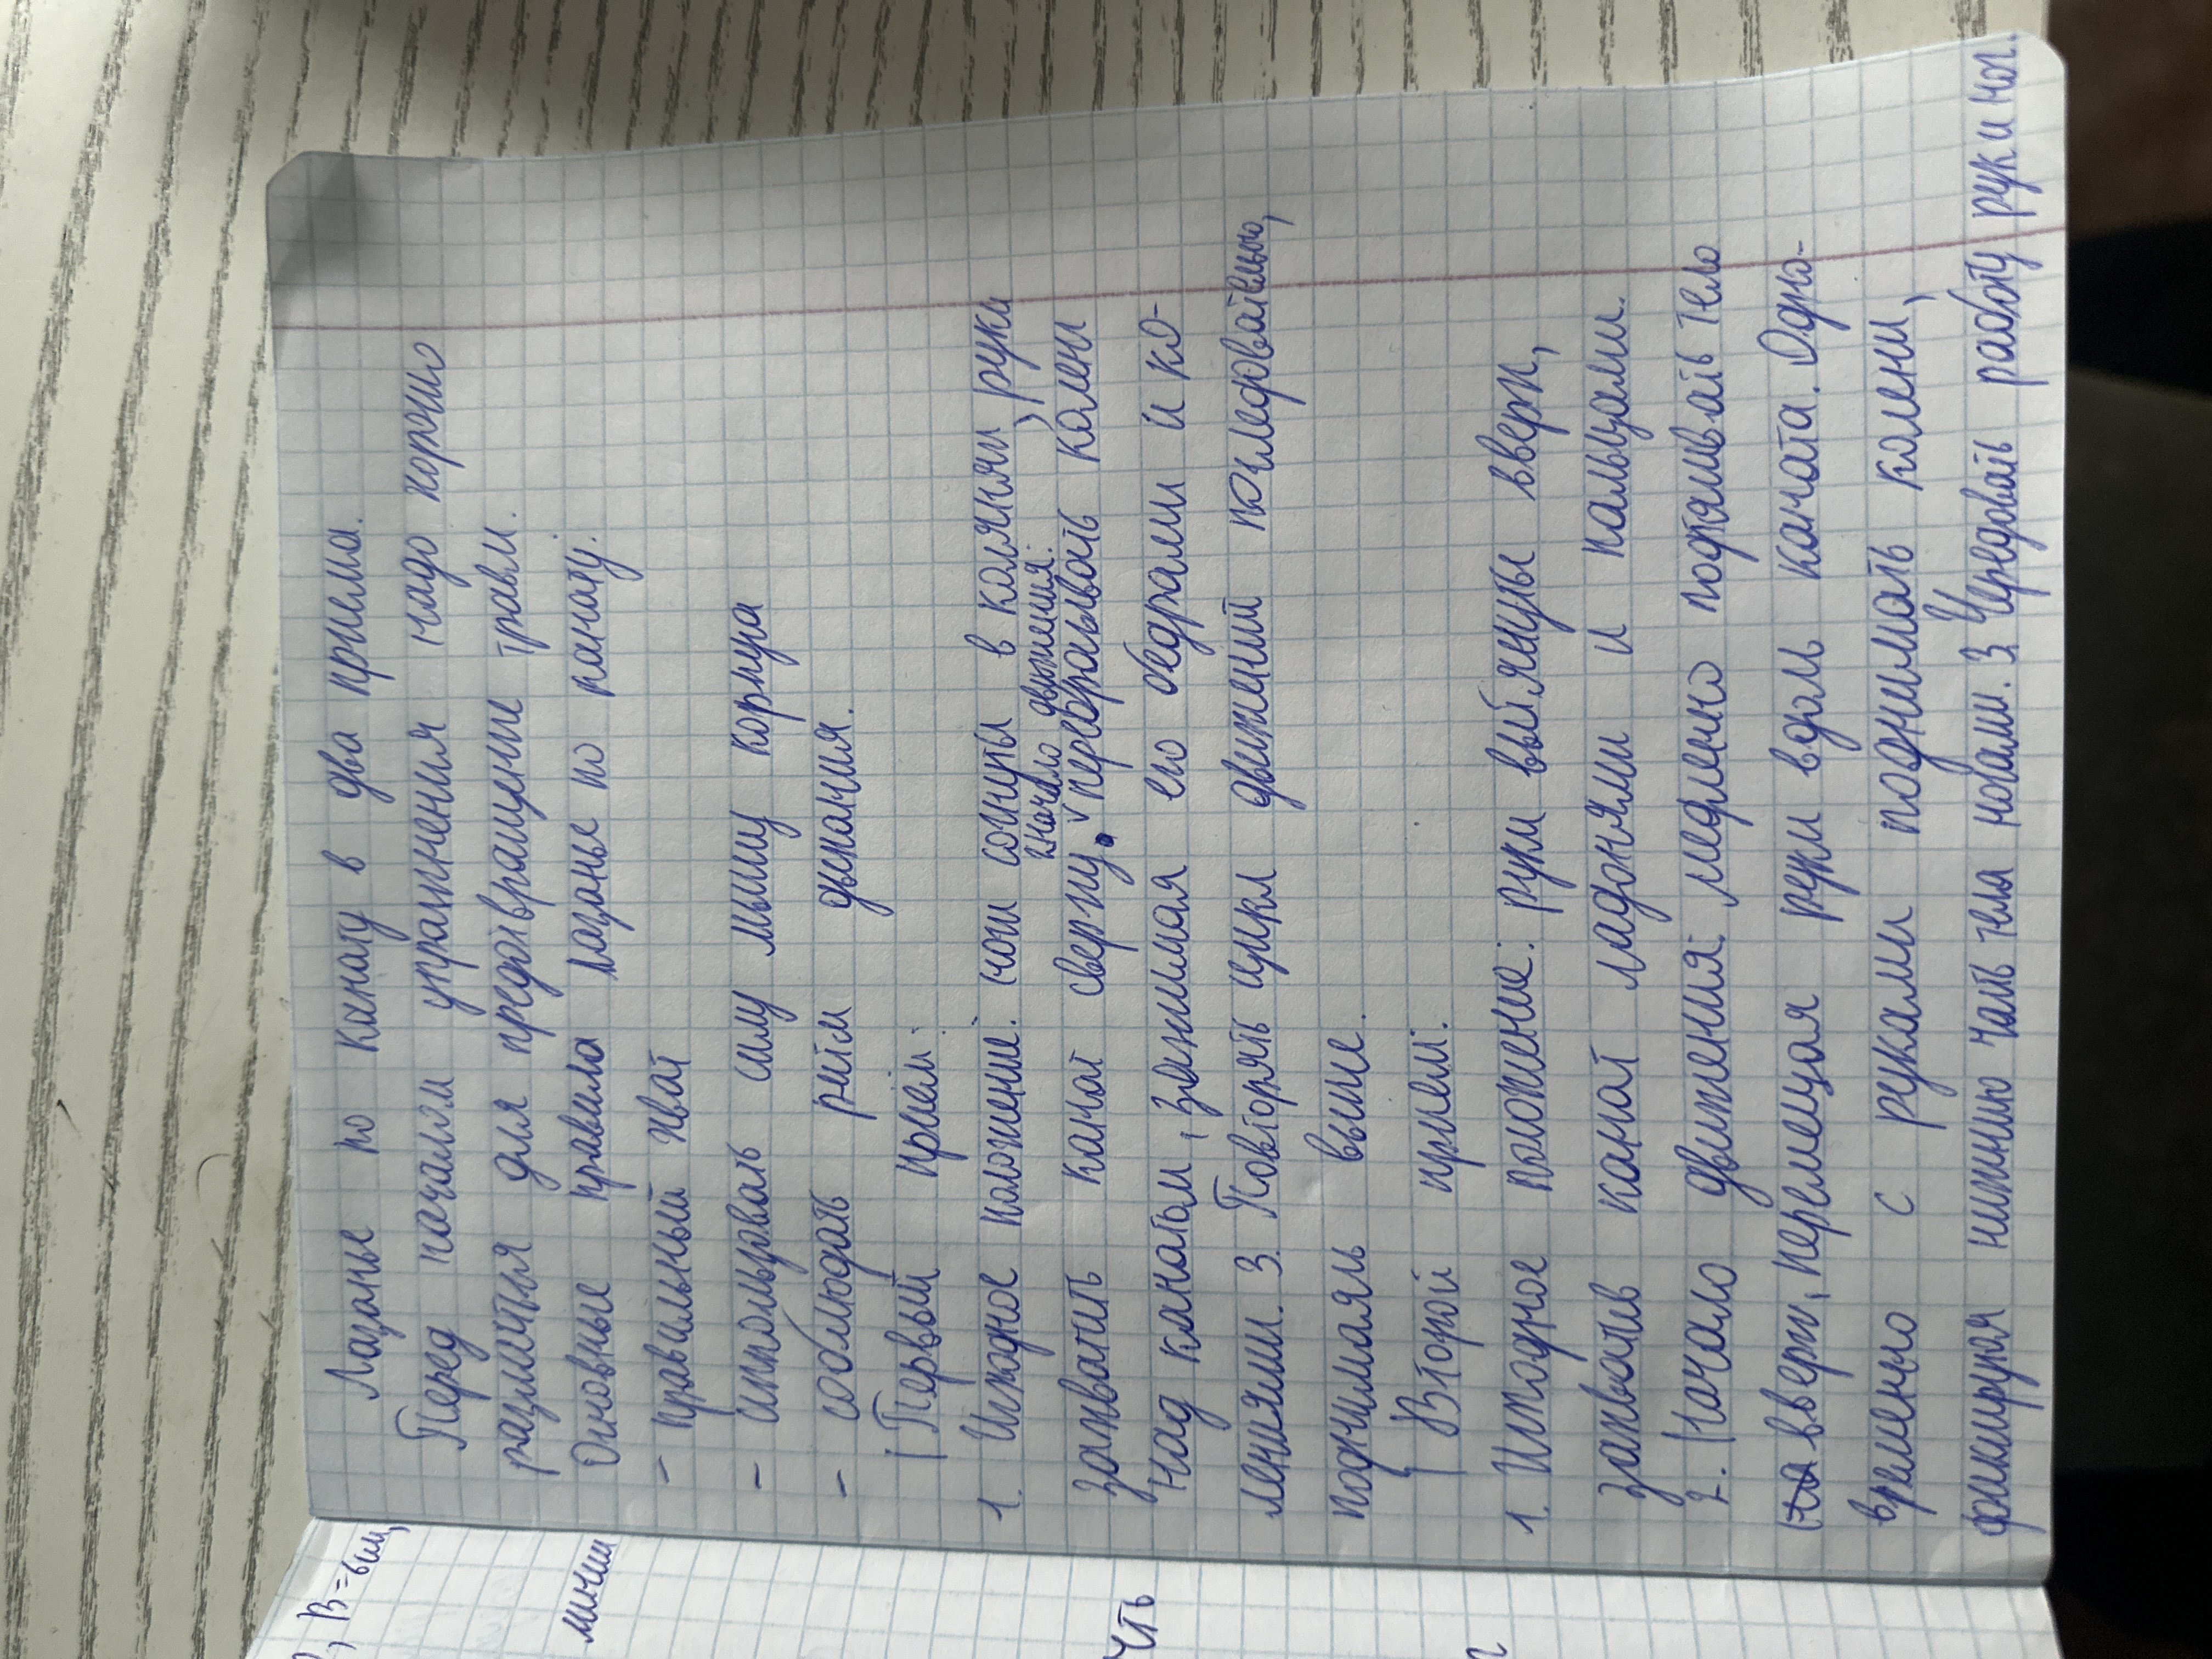 Лазанье по канату в два приема.
Перед началом упражнения надо хорошо
размяться для предотвращение травм.
Основные правила лазанье по канату.
- правильный хват
- использовать силу мышц корпуса
- соблюдать ритм дыхания.
Первый приём:
1. Исходное положение: ноги согнуты в коленях, руки
2 Начало движения:
захватить канат сверху. перебрасывать колени
над канатом, зажимая его бедрами и ко-
ленями. 3. Повторять цикл движений последовательно,
поднимаясь выше.
Второй прием:
1. Исходное положение: руки вытянуты вверх,
захватив канат ладонями и пальцами.
2. Начало движения: медленно подтягивать тело
на вверх, перемещая руки вдоль каната. Одно-
временно с руками поднимать колени,
фиксируя нижнюю часть тела ногами. 3 Чередовать работу рук и ног.
, В=6см,
линии
чть